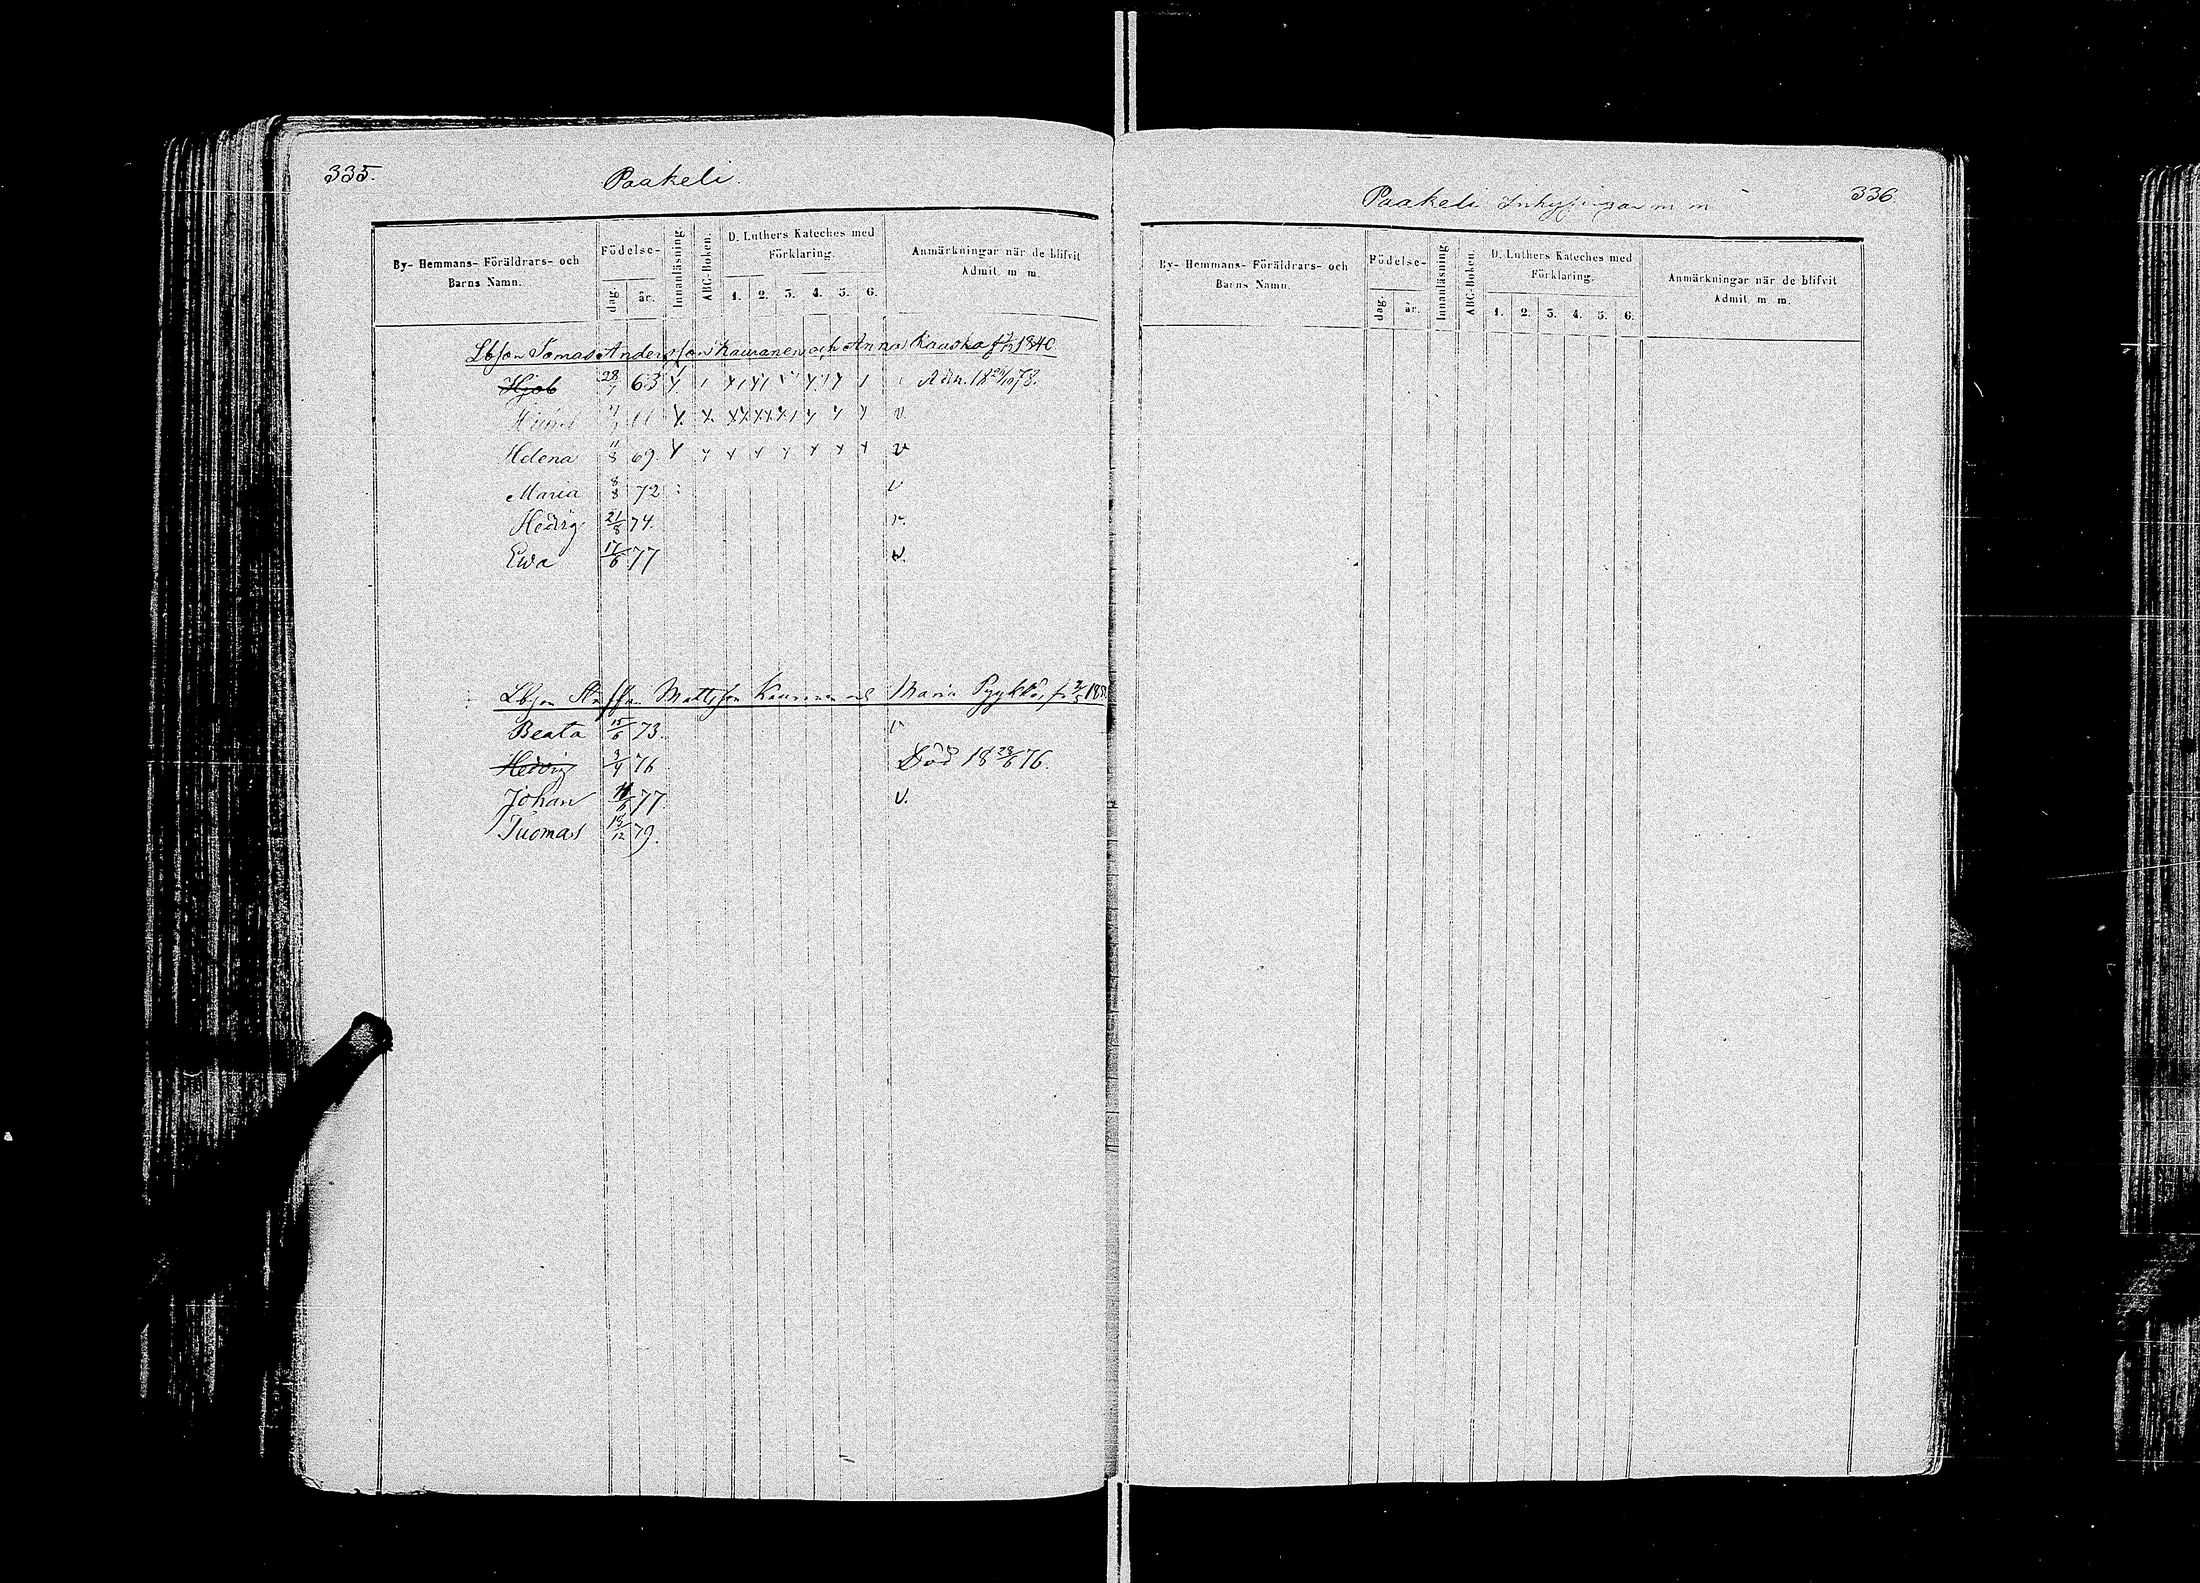 335
Paakeli.
By- Hemmans- Föräldrars- och
Barns Namn.
Födelse-
dag
år.
Innanläsning
ABC-Boken.
D. Luthers Kateches med
Förklaring.
1. 2. 3. 4. 5. 6.
Anmärkningar när de blifvit
Admit. m. m.
Lbson Tomas Andersson Kauranen och Anna Kauska 1840
Hjob 28/7 63 Adm. 18 78.
Helena 11/3 69 v
Maria 8/8 72 v
Hedvig 21/8 74. v.
Ewa 17/6 77 v.
Lbson Mattsson Kauranen och Maria Pyykkö, f.
Beata 15/6 73. v
Hedvig 3/4 76 Död 18 28/6 76.
Johan 77 v.
Tuomas 18/12 79.
336
Paakeli Inhysingar m m
By- Hemmans- Föräldrars- och
Barns Namn.
Födelse-
dag
år.
Innanläsning
ABC-Boken.
D. Luthers Kateches med
Förklaring.
1. 2. 3. 4. 5. 6.
Anmärkningar när de blifvit
Admit. m. m.